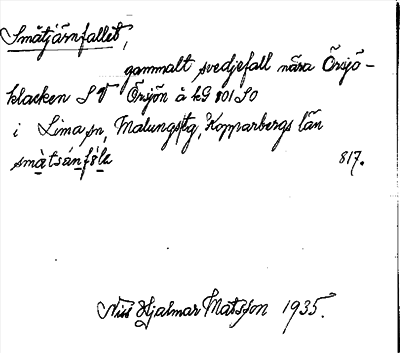 Småtjärnfallet,
gammalt svedjefall nära Örsjö-
klacken S V Örsjön å kG 801 SO
i Lima sn, Malungs tg, Kopparbergs län
smàtsánfàlẹ 817.
Nils Hjalmar Matsson 1935.